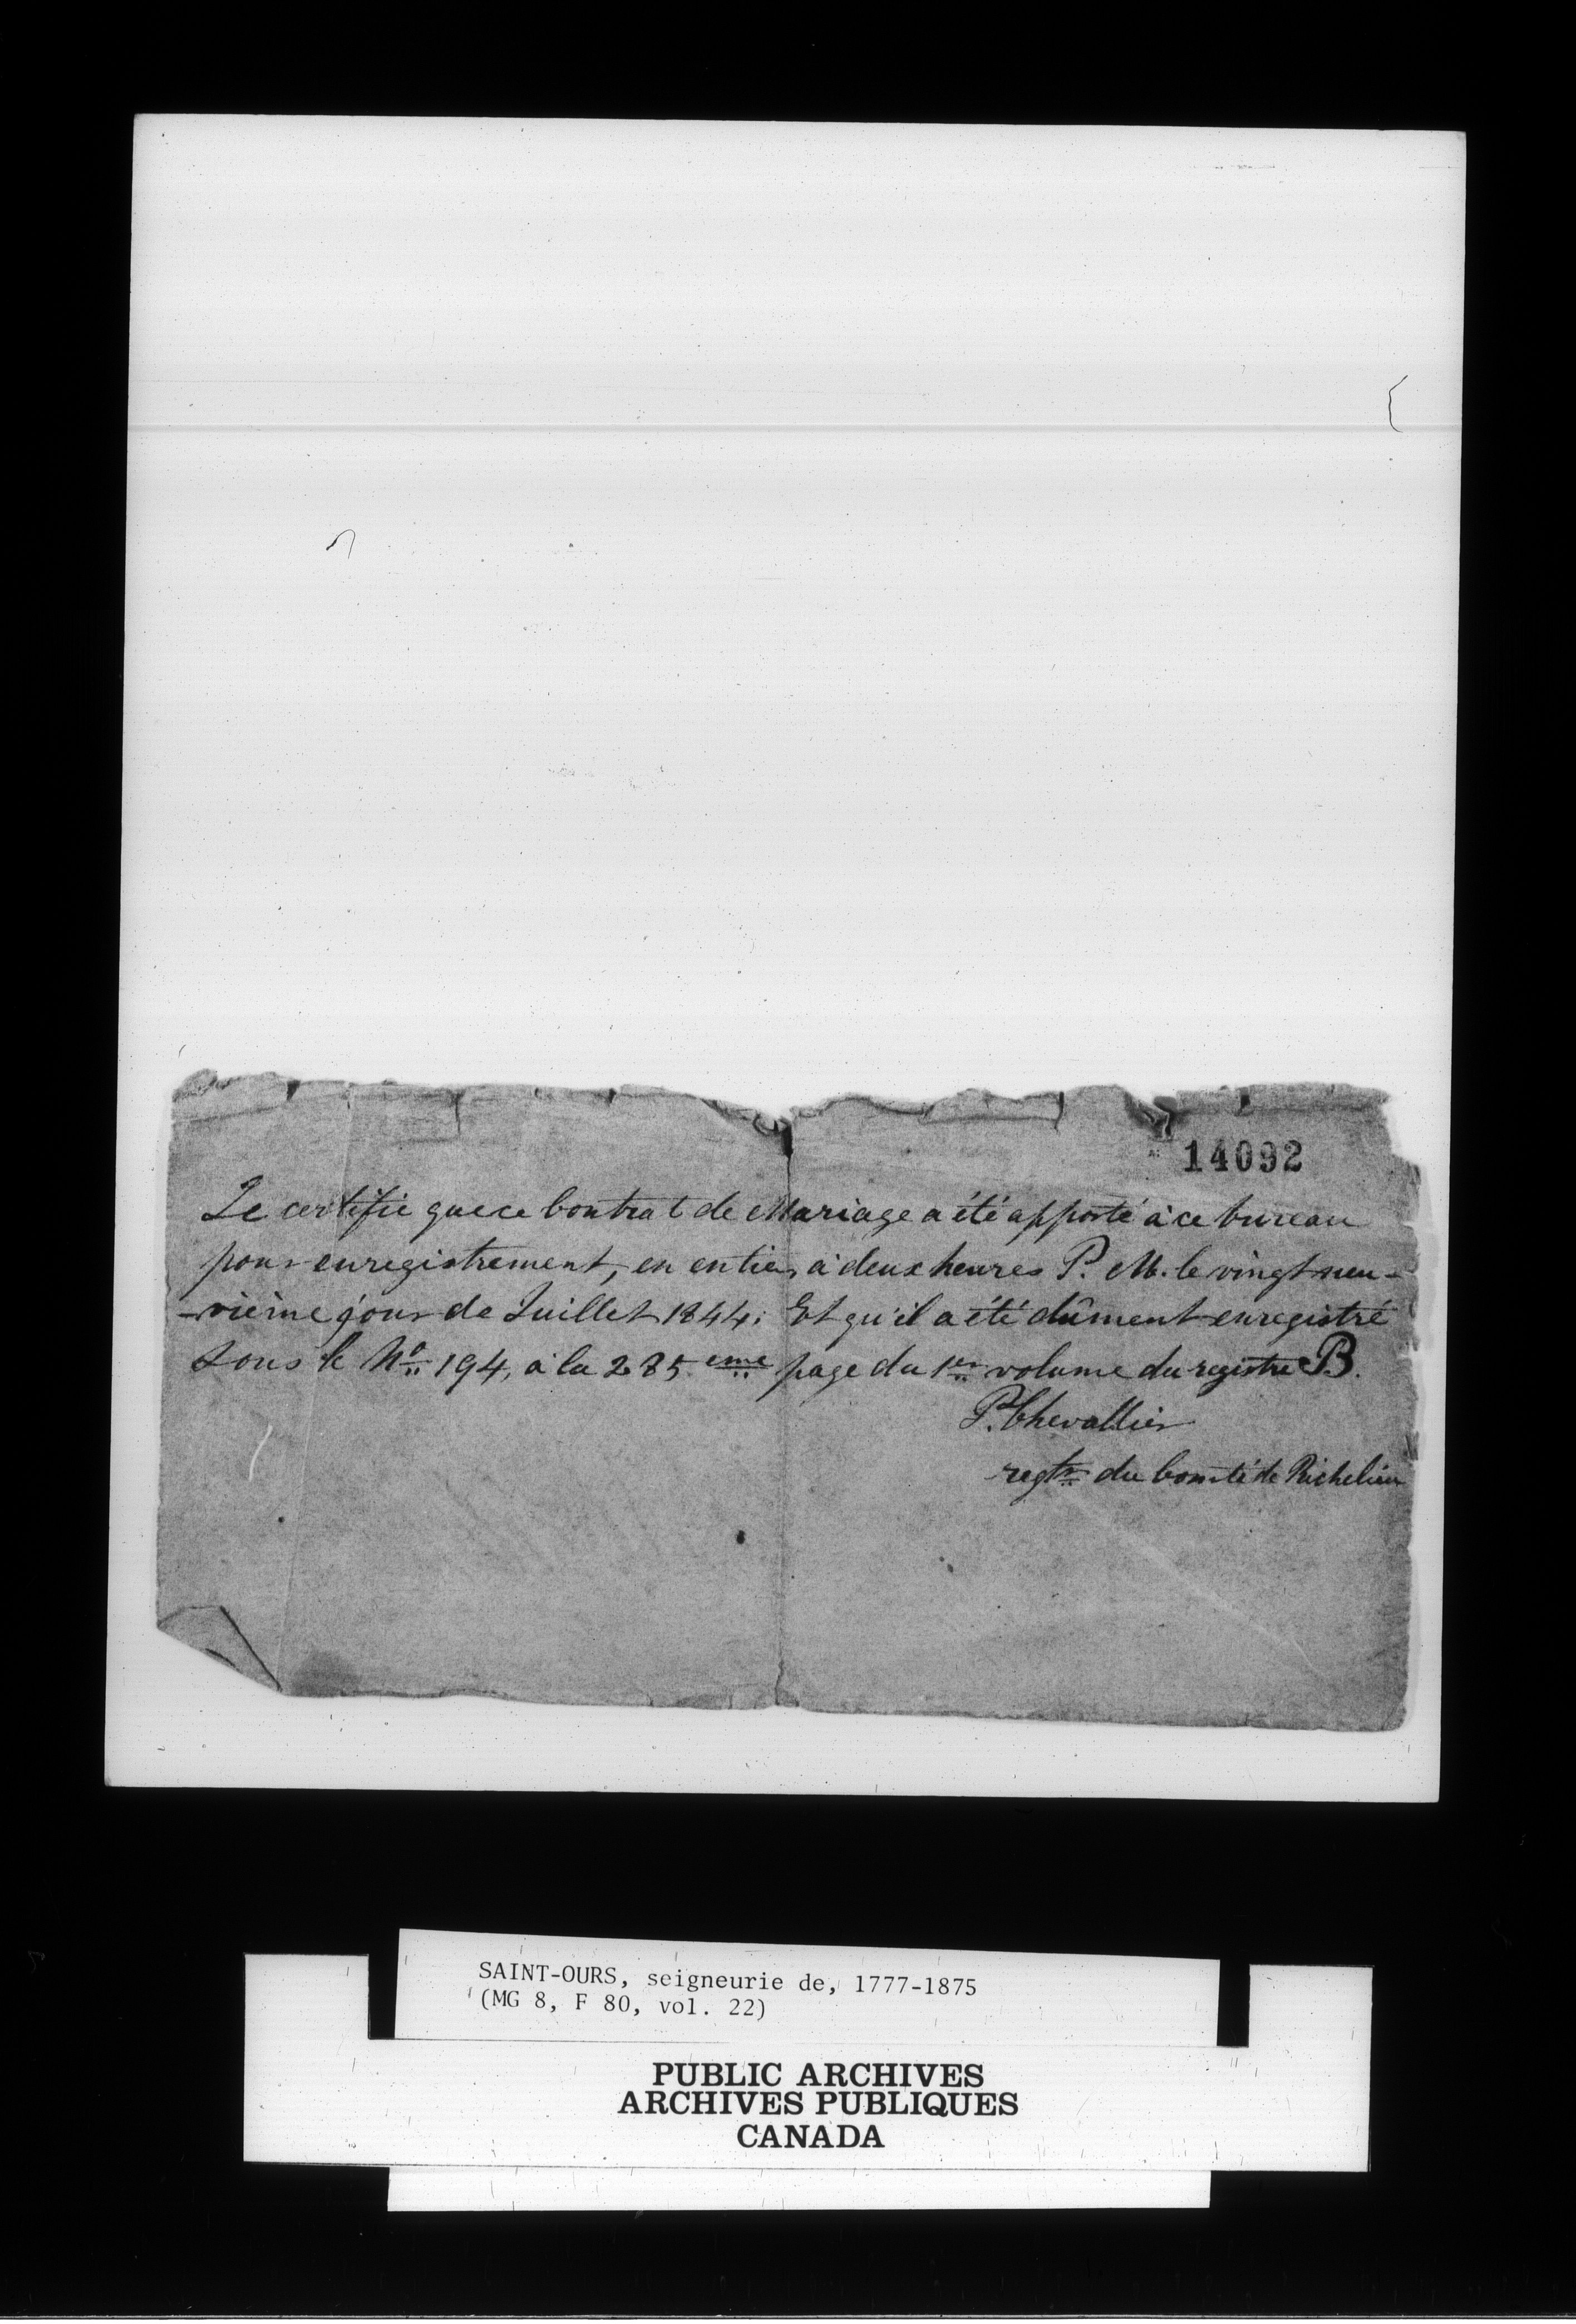 14092
Je certifie que ce Contrat de Mariage a été apporté à ce bureau
pour enregistrement, en entier, à deux heures P. M. le vingt neu-
-vième jour de Juillet 1844; Et qu'il a été dûment enregistré
sous le No 194, à la 285eme page du 1er volume du registre B.
P. Chevallier
regtr du Comté de Richelieu
SAINT-OURS, seigneurie de, 1777-1875
(MG 8, F 80, vol. 22)
PUBLIC ARCHIVES
ARCHIVES PUBLIQUES
CANADA